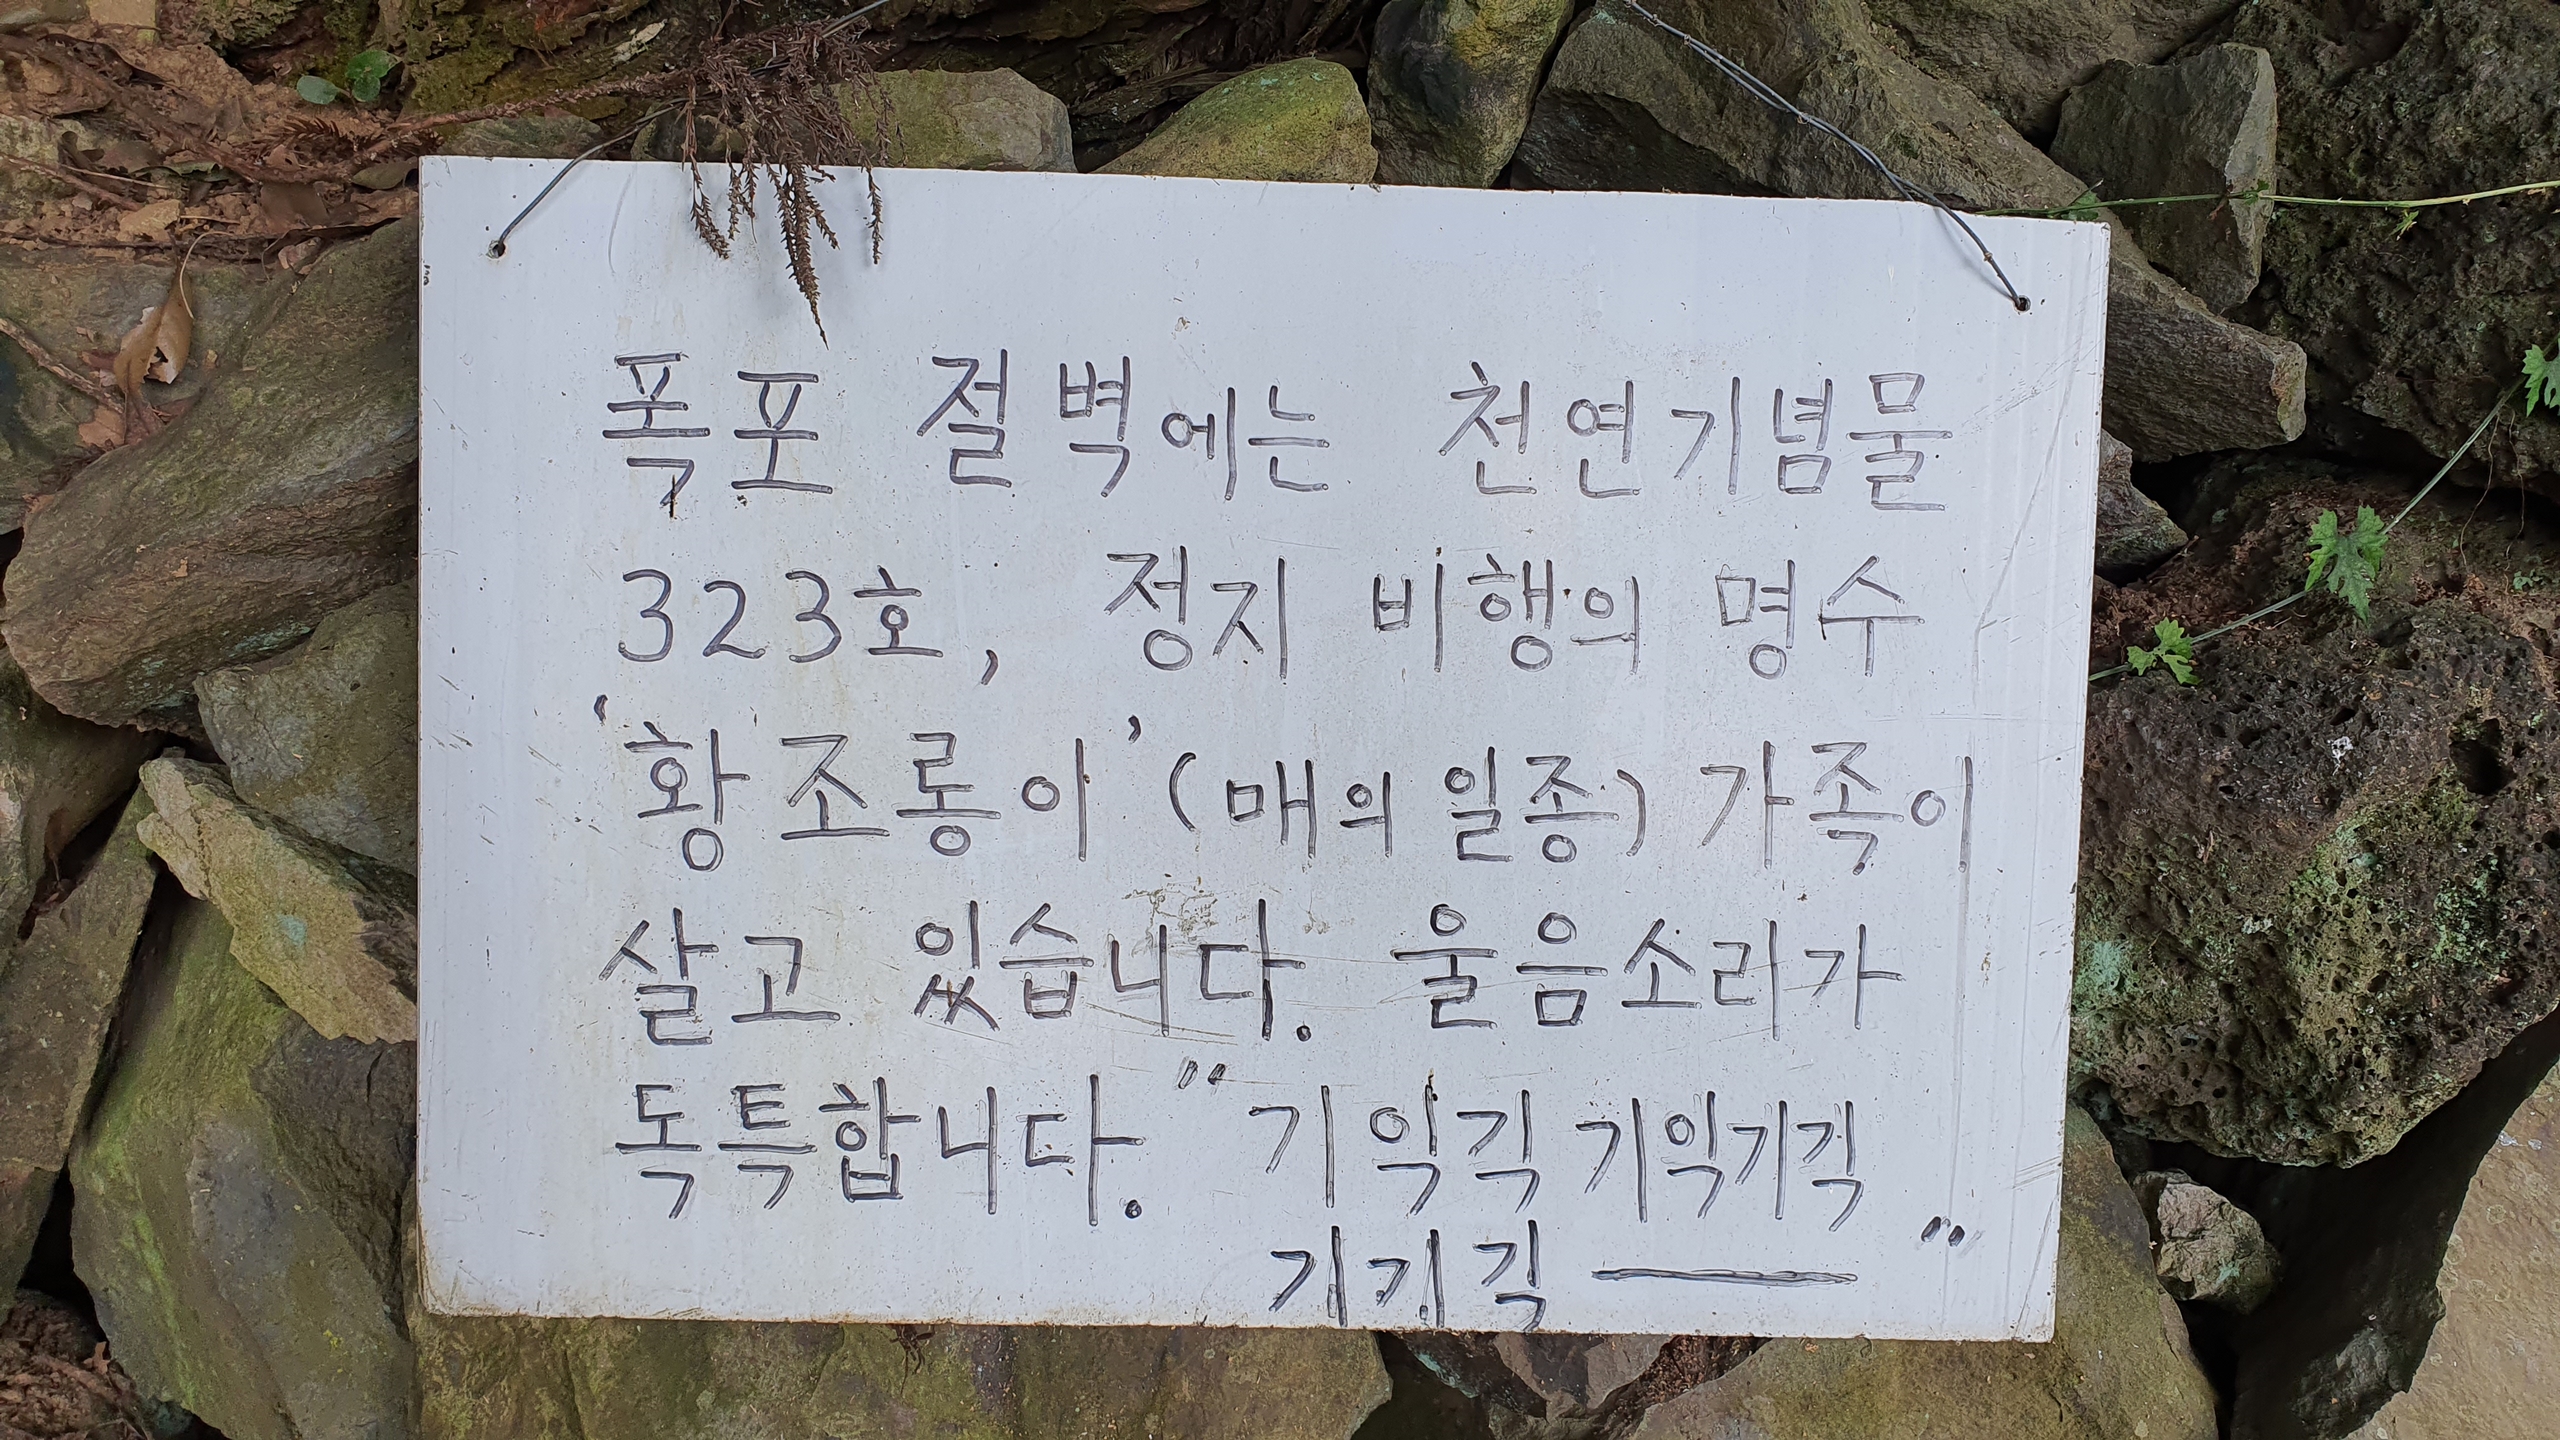 폭포 절벽에는 천연기념물
323호, 정지 비행의 명수
'황조롱이' (매의 일종) 가족이
살고 있습니다. 울음소리가
독특합니다. "기익긱 기익기긱
기기긱 ―"